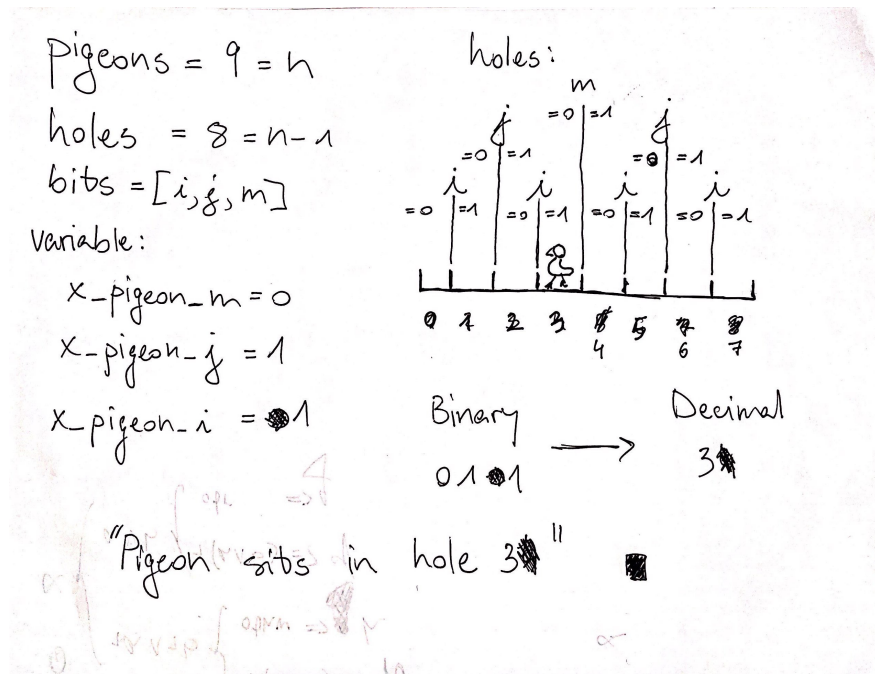 pigeons = 9 = n
holes = 8 = n-1
bits = [i, j, m]
variable:
x_pigeon_m = 0
x_pigeon_j = 1
x_pigeon_i = 1
holes:
m
=0 =1
j j
=0 =1 = =1
i i i i
=0 =1 =0 =1 =0 =1 =0 =1
0 1 2 3 4 5 6 7
Binary → Decimal
011 3
"Pigeon sits in hole 3"